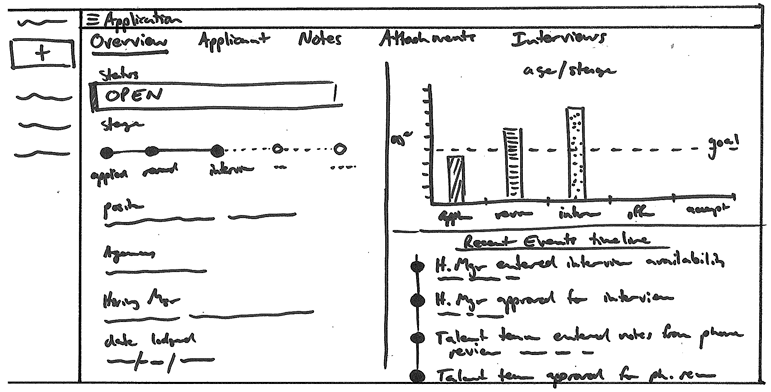 +
Application
Overview Applicant Notes Attachments Interviews
Status
OPEN
stage
interview
Hiring Mgr
date lodged
age/stage
age
goal
Recent Events timeline
H. Mgr entered interview availability
H. Mgr approved for interview
Talent team entered notes from phone
review
Talent team approved for ph. rev